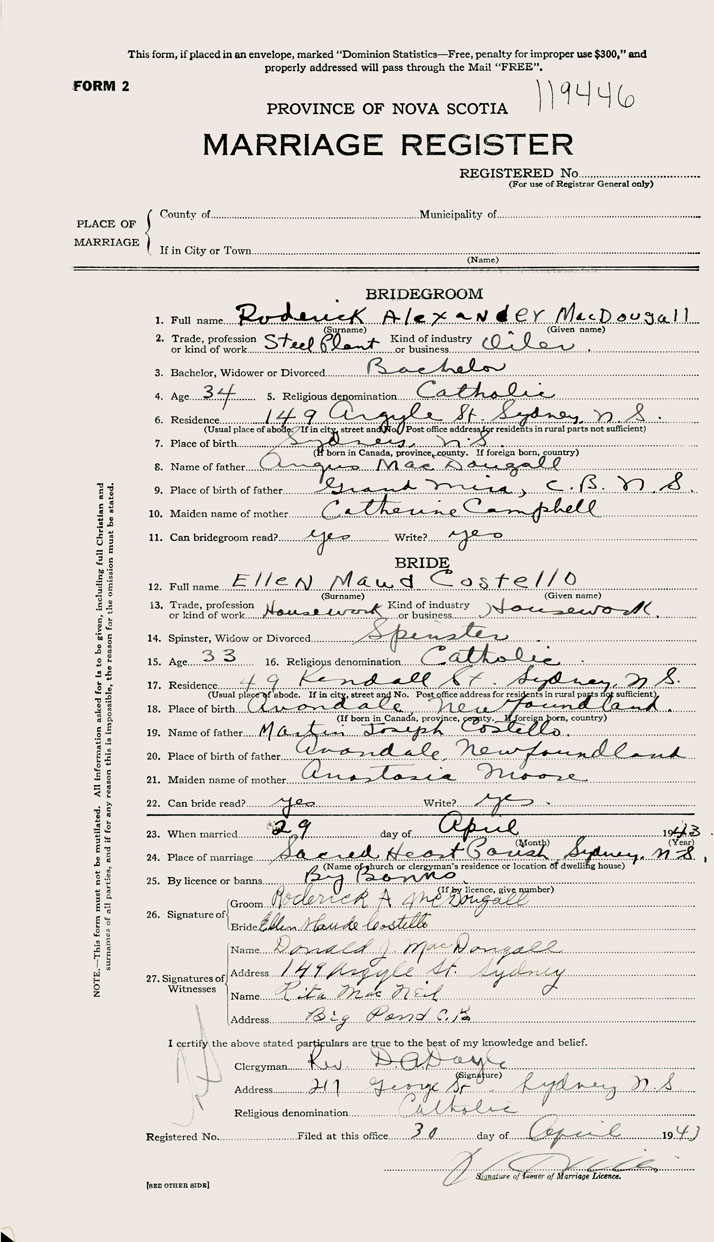 This form, if placed in an envelope, marked "Dominion Statistics—Free, penalty for improper use $300," and
properly addressed will pass through the Mail "FREE".
FORM 2
119446
PROVINCE OF NOVA SCOTIA
MARRIAGE REGISTER
REGISTERED No.
(For use of Registrar General only)
PLACE OF MARRIAGE
County of Municipality of
If in City or Town
(Name)
BRIDEGROOM
1. Full name Roderick Alexander MacDougall
(Surname) (Given name)
2. Trade, profession or kind of work Steel Plant Kind of industry or business Oiler
3. Bachelor, Widower or Divorced Bachelor
4. Age 34 5. Religious denomination Catholic
6. Residence 149 Argyle St. Sydney, N.S.
(Usual place of abode. If in city, street and No. Post office address for residents in rural parts not sufficient)
7. Place of birth Sydney, N.S.
(If born in Canada, province, county. If foreign born, country)
8. Name of father Angus MacDougall
9. Place of birth of father Grand Mira, C.B. N.S.
10. Maiden name of mother Catherine Campbell
11. Can bridegroom read? yes Write? yes
BRIDE
12. Full name Ellen Maud Costello
(Surname) (Given name)
13. Trade, profession or kind of work Housework Kind of industry or business Housework.
14. Spinster, Widow or Divorced Spinster
15. Age 33 16. Religious denomination Catholic
17. Residence 49 Kendall St. Sydney, N.S.
(Usual place of abode. If in city, street and No. Post office address for residents in rural parts not sufficient)
18. Place of birth Avondale, Newfoundland.
(If born in Canada, province, county. If foreign born, country)
19. Name of father Martin Joseph Costello.
20. Place of birth of father Avondale, Newfoundland
21. Maiden name of mother Anastasia Moore
22. Can bride read? yes Write? yes.
23. When married 29 day of April 1943
(Month) (Year)
24. Place of marriage Sacred Heart Parish Sydney, N.S.,
(Name of church or clergyman's residence or location of dwelling house)
25. By licence or banns By Banns
(If by licence, give number)
26. Signature of
Groom Roderick A McDougall
Bride Ellen Maude Costello
27. Signatures of Witnesses
Name Donald J. MacDougall
Address 149 Argyle St. Sydney
Name Rita MacNeil
Address Big Pond C.B.
I certify the above stated particulars are true to the best of my knowledge and belief.
Clergyman Rev. D A Doyle
(Signature)
Address George St. Sydney N.S
Religious denomination Catholic
Registered No. Filed at this office 30 day of April 1943
Signature of Issuer of Marriage Licence.
[SEE OTHER SIDE]
NOTE.—This form must not be mutilated. All information asked for is to be given, including full Christian and
surnames of all parties, and if for any reason this is impossible, the reason for the omission must be stated.